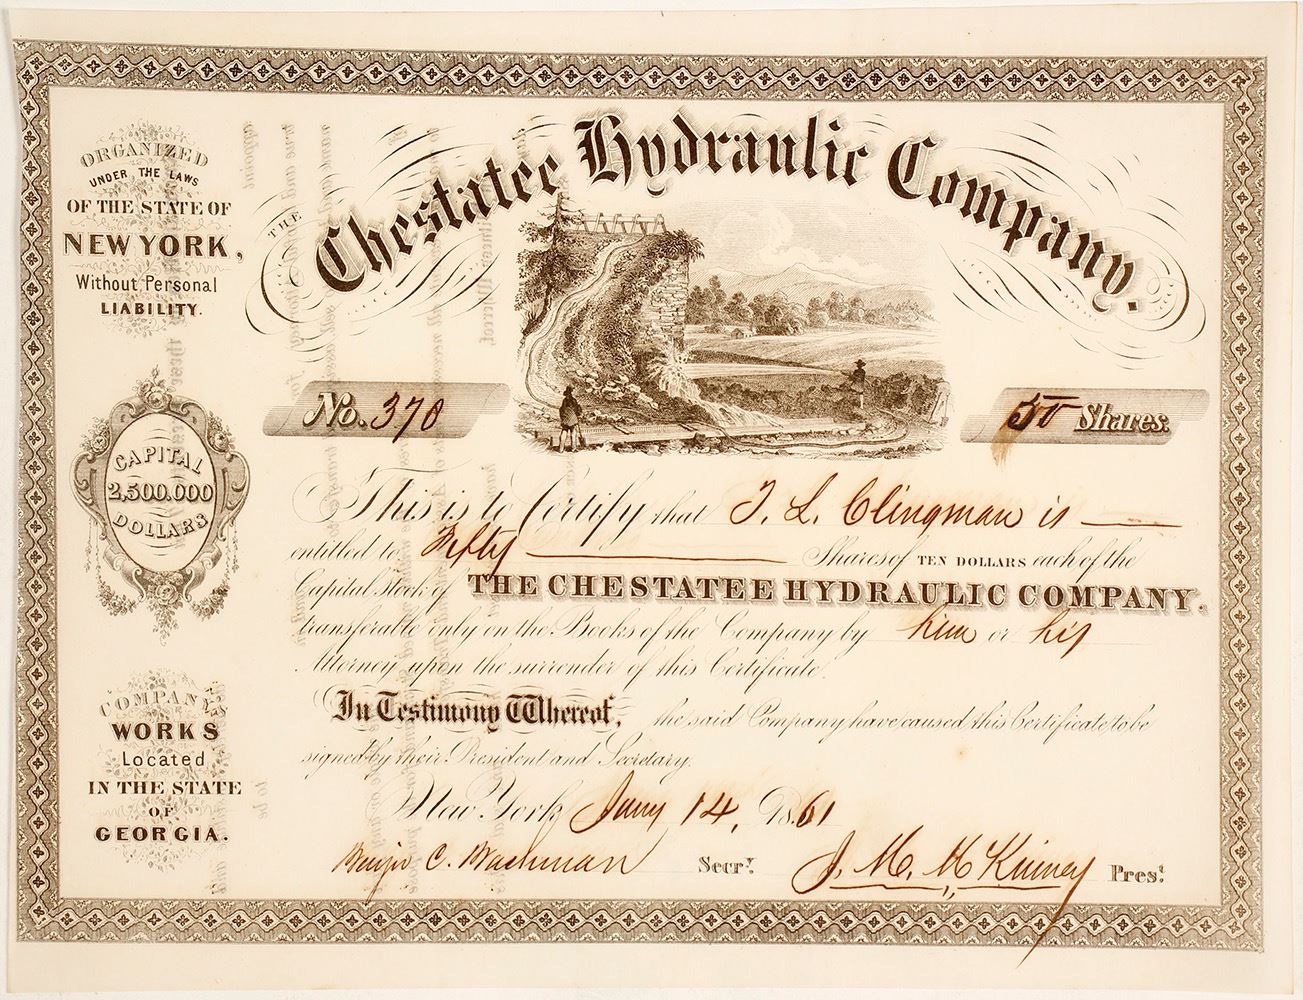 ORGANIZED
UNDER THE LAWS
OF THE STATE OF
NEW YORK,
Without Personal
LIABILITY.
THE Chestatee Hydraulic Company.
No. 370
50 Shares.
CAPITAL
2,500.000
DOLLARS
This is to Certify that T. L. Clingman is
entitled to Fifty Shares of TEN DOLLARS each of the
Capital Stock of THE CHESTATEE HYDRAULIC COMPANY.
transferable only on the Books of the Company by him or his
Attorney upon the surrender of this Certificate.
In Testimony Whereof, the said Company have caused this Certificate to be
signed by their President and Secretary.
New York Jany 14, 1861
COMPANY'S
WORKS
Located
IN THE STATE
OF
GEORGIA.
Benjn C. Wachman Secry. J. M. McKinney Prest.